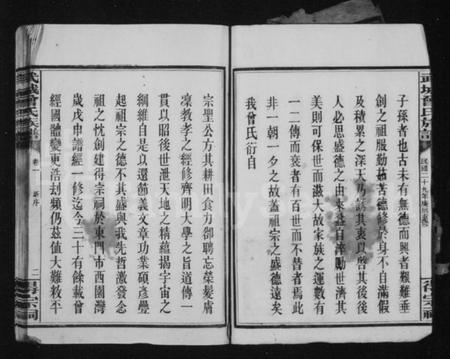 武城曾氏族譜
民國二十九年庚辰
子孫者也古未有無德而興者雖華
創之祖服勤茹苦德修於身不自滿假
及積累之深天乃　其衷以啓其後後
人必思盛德之由來　自淬勵世濟其
美則可保世而滋大故家族之運數有
一二傳而衰者有百世而不替者焉此
非一朝一夕之故蓋祖宗之盛德遠矣
我曾氏衍自
得宗祠
宗聖公方其耕田食力卻聘忘榮髮膚
凜教孝之經修齊明大學之旨道傳一
貫以昭後世泄天地之精蘊揭宇宙之
綱維自是以還節義文章功業碩彥疊
起祖宗之德不其盛與我先哲激發念
祖之忱創建得宗祠於東門市西園灣
歲戊申譜經一修迄今三十有餘載曾
經國體變更浩劫頻仍茲值大難敉平
武城曾氏族譜
卷一
新序
二
得宗祠